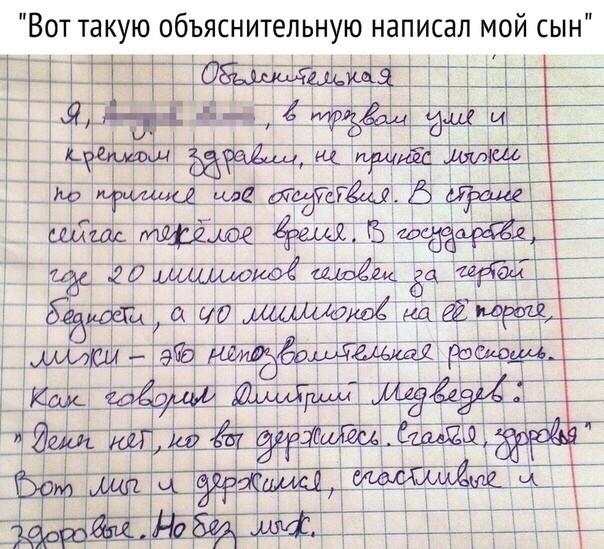 "Вот такую объяснительную написал мой сын"
Объяснительная
Я, , в трезвом уме и
крепком здравии, не принёс лыжи
по причине их отсутствия. В стране
сейчас тяжёлое время. В государстве,
где 20 миллионов человек за чертой
бедности, а 40 миллионов на её пороге,
лыжи – это непозволительная роскошь.
Как говорил Дмитрий Медведев:
"Денег нет, но вы держитесь. Счастья, здоровья"
Вот мы и держимся, счастливые и
здоровые. Но без лыж.